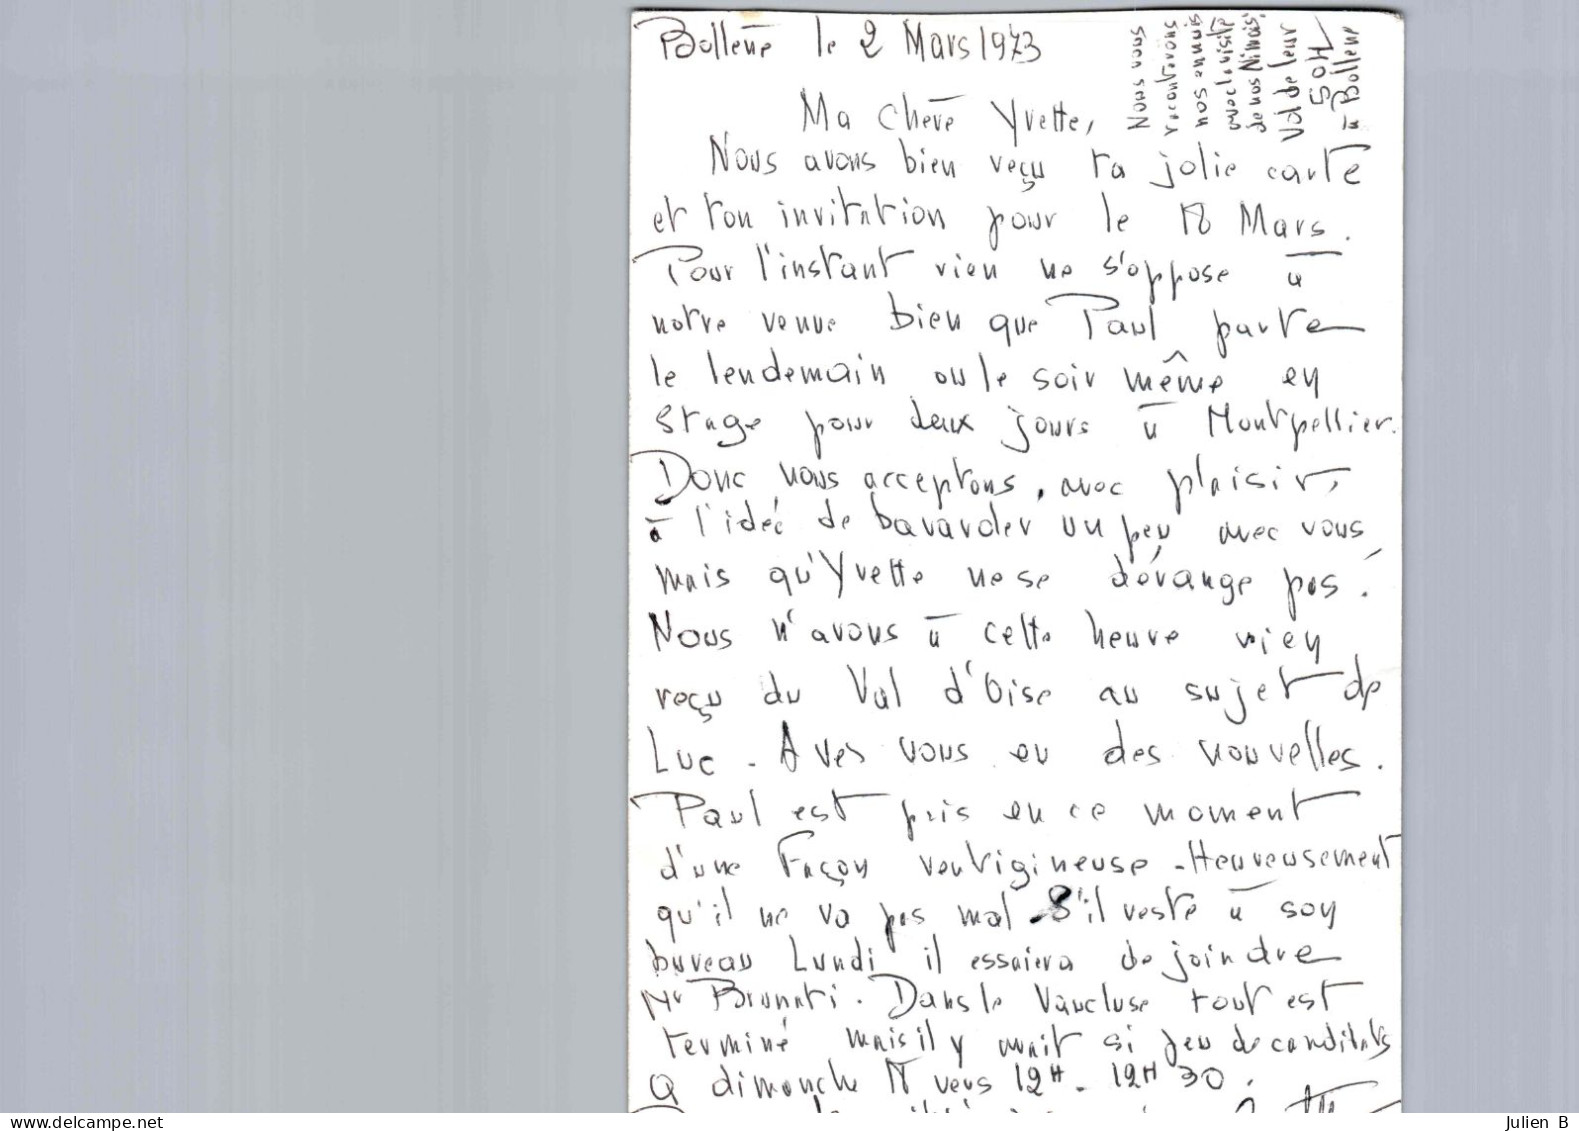 Bollène le 2 Mars 1973
Ma chère Yvette,
Nous avons bien reçu ta jolie carte
et ton invitation pour le 18 Mars.
Pour l'instant rien ne s'oppose à
notre venue bien que Paul parte
le lendemain ou le soir même en
stage pour deux jours à Montpellier.
Donc nous acceptons, avec plaisir,
à l'idée de bavarder un peu avec vous
mais qu'Yvette ne se dérange pas!
Nous n'avons à cette heure rien
reçu du Val d'Oise au sujet de
Luc. Aves vous eu des nouvelles.
Paul est pris en ce moment
d'une façon vertigineuse - Heureusement
qu'il ne va pas mal. S'il reste à son
bureau Lundi il essaiera de joindre
Mr Brunati. Dans le Vaucluse tout est
terminé mais il y avait si peu de candidats
A dimanche 18 vers 12H - 12H 30.
Nous vous
raconterons
nos ennuis
avec la visite
de nos
Val de leur
à Bollène
Julien B